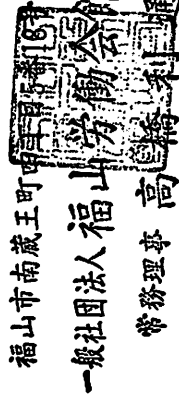 福山市南蔵王町四丁目5番18号
一般社団法人福山労働会
常務理事 高橋利